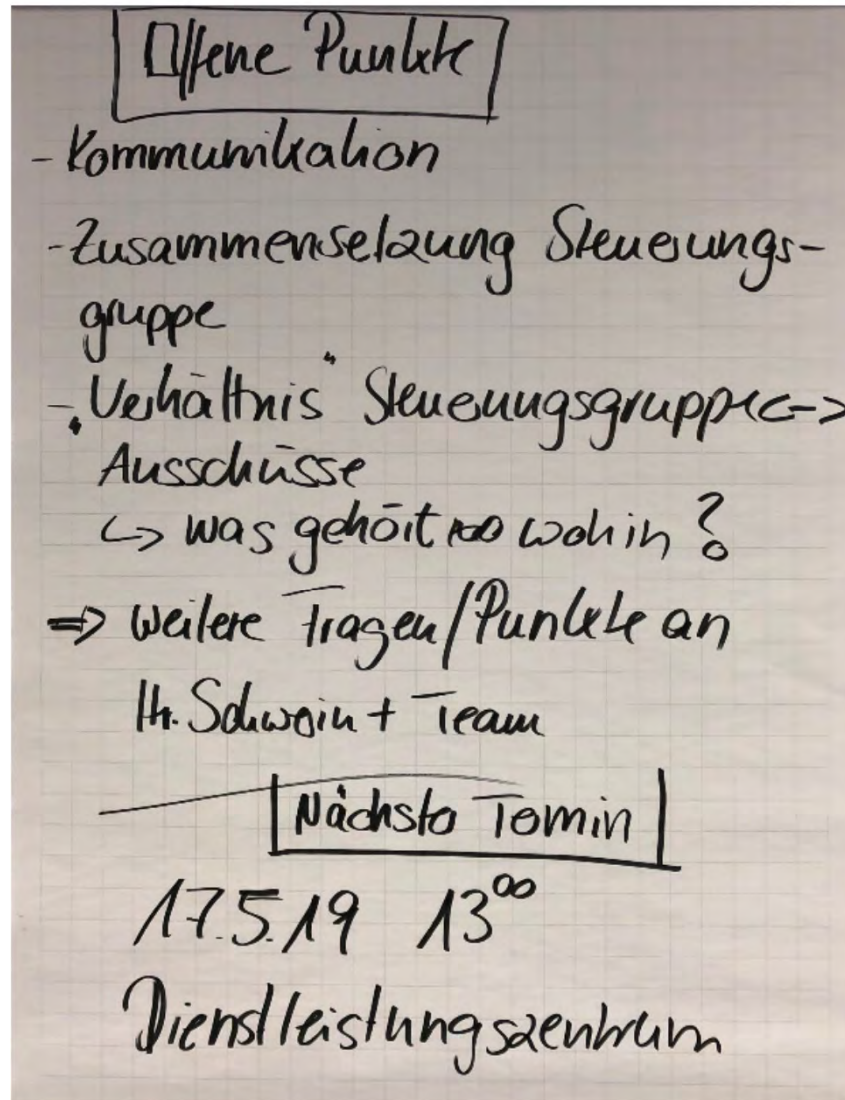 Offene Punkte
- Kommunikation
- Zusammensetzung Steuerungs-
gruppe
- "Verhältnis" Steuerungsgruppe <->
Ausschüsse
↳ was gehört wohin?
⇒ weitere Fragen/Punkte an
Hr. Schwein + Team
Nächster Termin
17.5.19 13⁰⁰
Dienstleistungszentrum